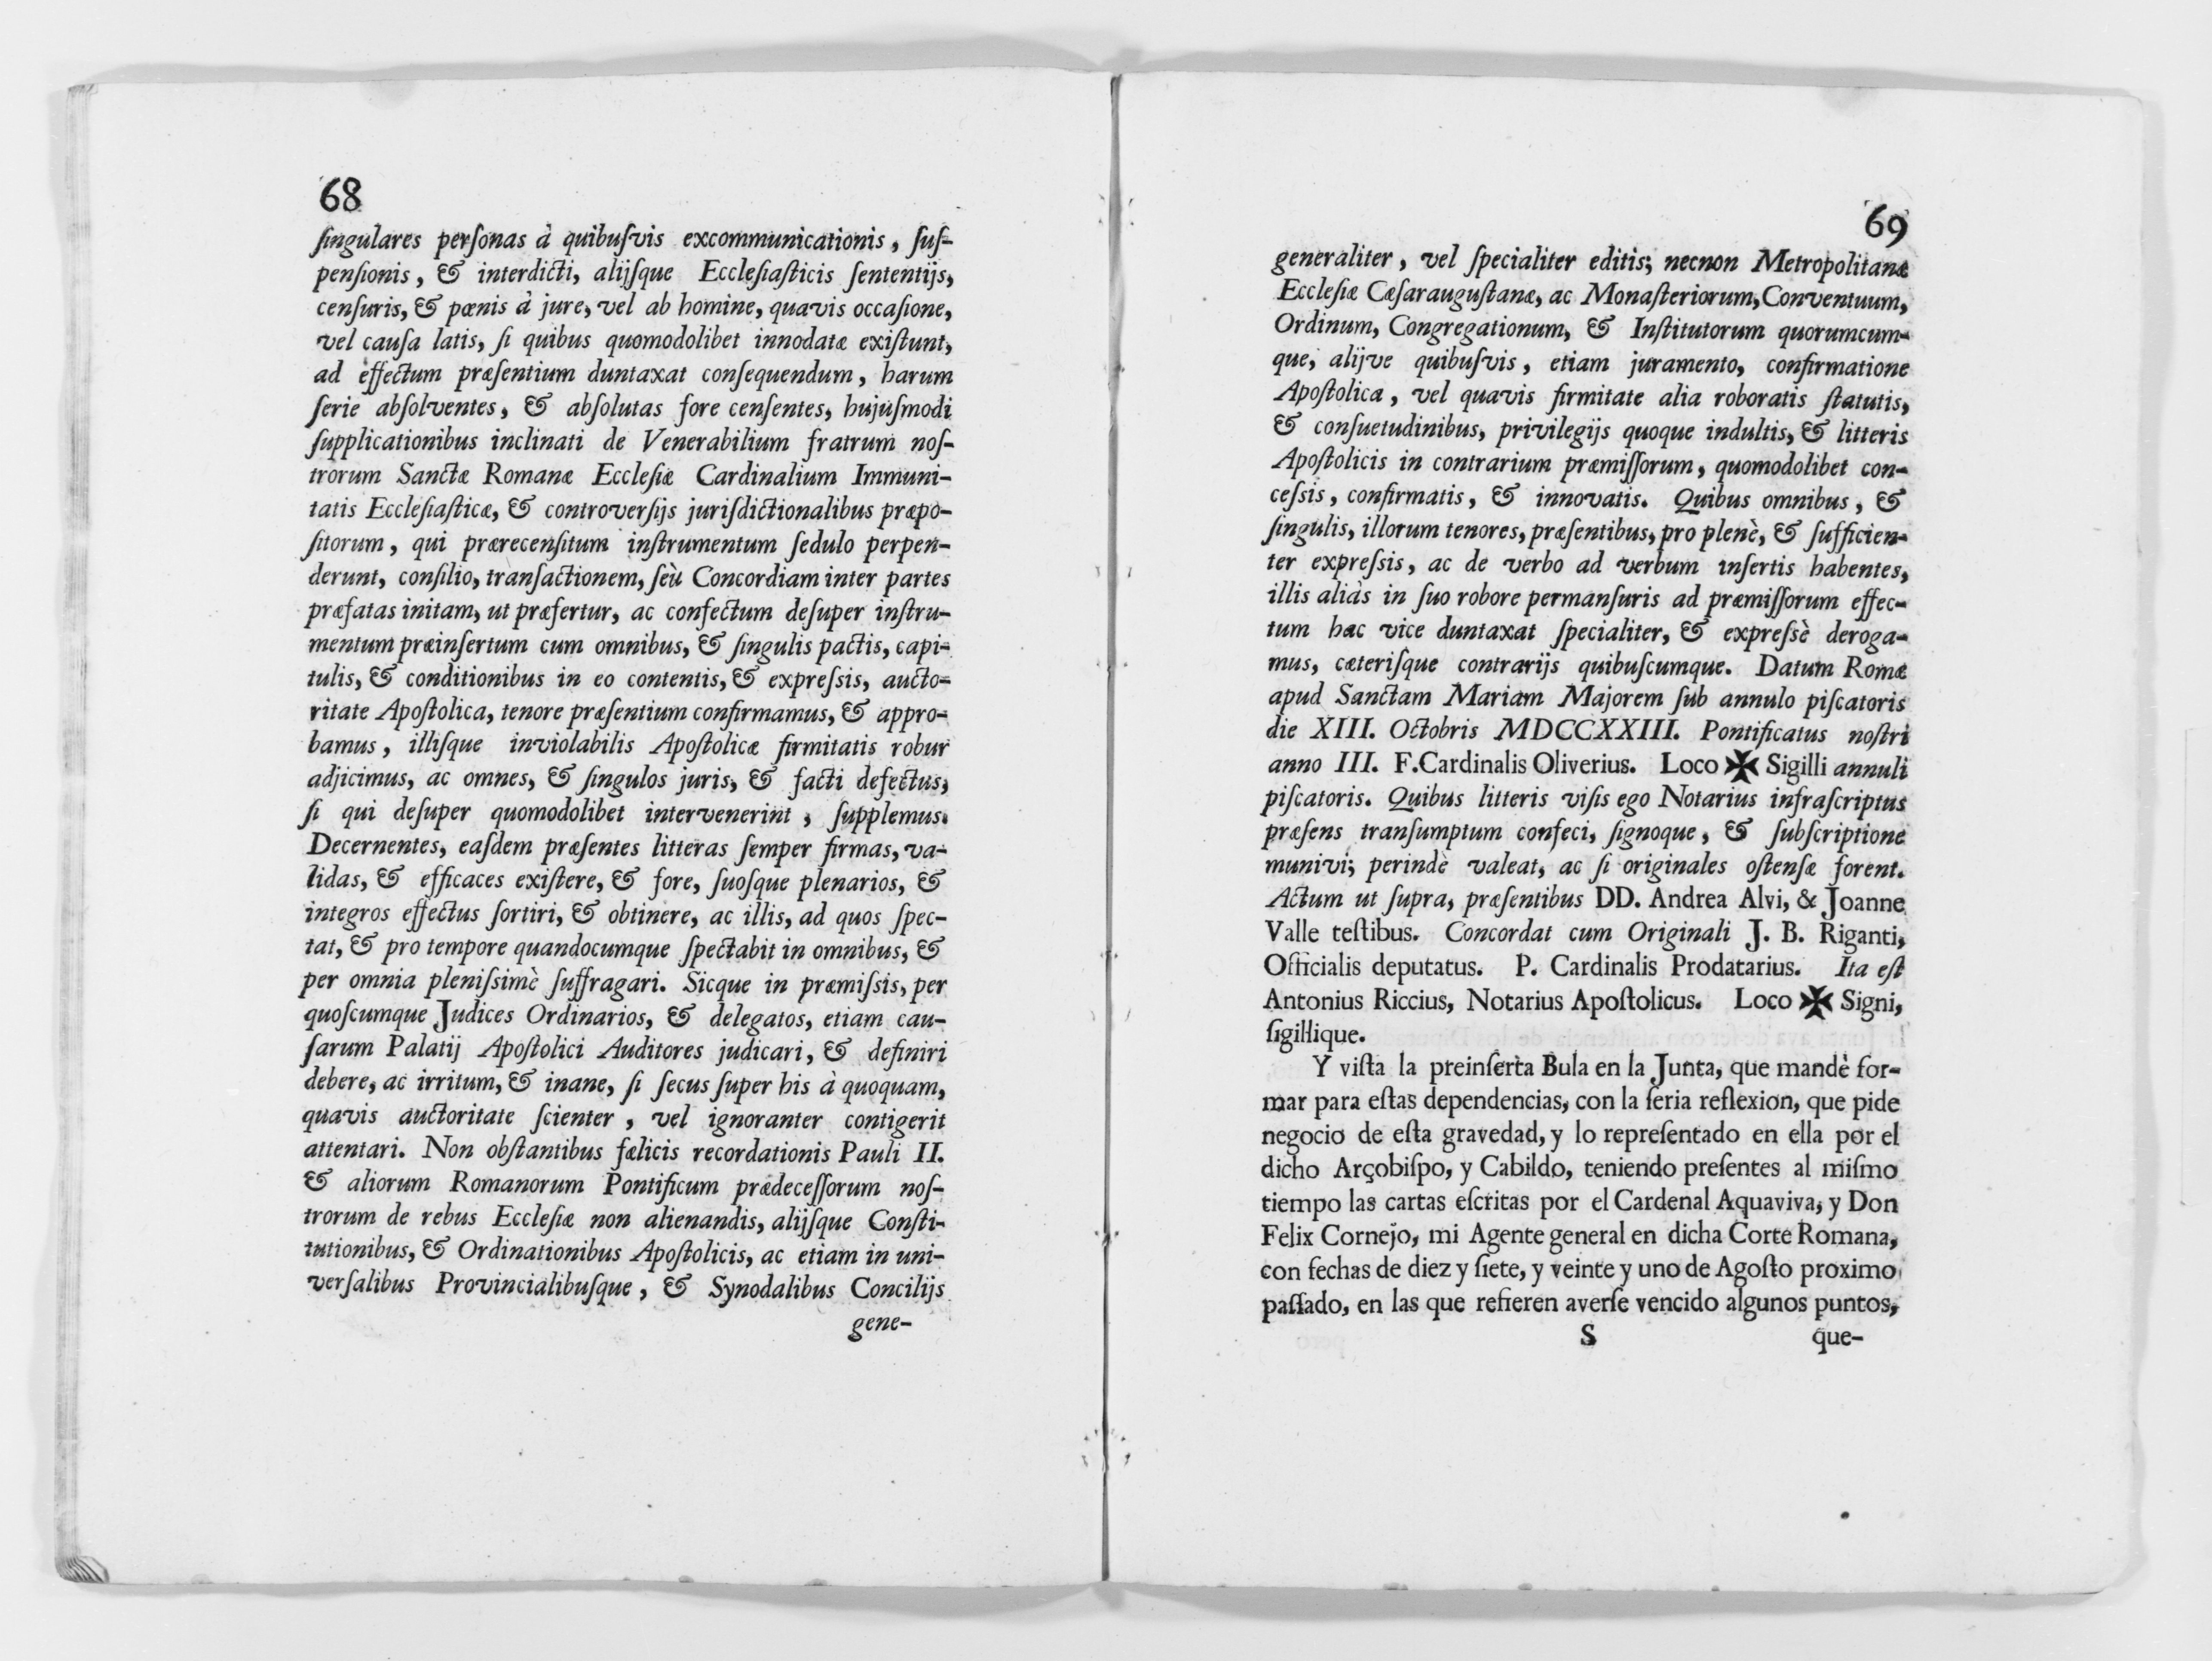 68
ſingulares perſonas à quibuſvis excommunicationis, ſuſ-
penſionis, & interdicti, alijſque Eccleſiaſticis ſententijs,
cenſuris, & pœnis à jure, vel ab homine, quavis occaſione,
vel cauſa latis, ſi quibus quomodolibet innodatæ exiſtunt,
ad effectum præſentium duntaxat conſequendum, harum
ſerie abſolventes, & abſolutas fore cenſentes, hujuſmodi
ſupplicationibus inclinati de Venerabilium fratrum noſ-
trorum Sanctæ Romanæ Eccleſiæ Cardinalium Immuni-
tatis Eccleſiaſticæ, & controverſijs juriſdictionalibus præpo-
ſitorum, qui prærecenſitum inſtrumentum ſedulo perpen-
derunt, conſilio, tranſactionem, ſeù Concordiam inter partes
præfatas initam, ut præfertur, ac confectum deſuper inſtru-
mentum præinſertum cum omnibus, & ſingulis pactis, capi-
tulis, & conditionibus in eo contentis, & expreſsis, aucto-
ritate Apoſtolica, tenore præſentium confirmamus, & appro-
bamus, illiſque inviolabilis Apoſtolicæ firmitatis robur
adjicimus, ac omnes, & ſingulos juris, & facti defectus,
ſi qui deſuper quomodolibet intervenerint, ſupplemus.
Decernentes, eaſdem præſentes litteras ſemper firmas, va-
lidas, & efficaces exiſtere, & fore, ſuoſque plenarios, &
integros effectus ſortiri, & obtinere, ac illis, ad quos ſpec-
tat, & pro tempore quandocumque ſpectabit in omnibus, &
per omnia pleniſsimè ſuffragari. Sicque in præmiſsis, per
quoſcumque Judices Ordinarios, & delegatos, etiam cau-
ſarum Palatij Apoſtolici Auditores judicari, & definiri
debere, ac irritum, & inane, ſi ſecus ſuper his à quoquam,
quavis auctoritate ſcienter, vel ignoranter contigerit
attentari. Non obſtantibus fœlicis recordationis Pauli II.
& aliorum Romanorum Pontificum prædeceſſorum noſ-
trorum de rebus Eccleſiæ non alienandis, alijſque Conſti-
tutionibus, & Ordinationibus Apoſtolicis, ac etiam in uni-
verſalibus Provincialibuſque, & Synodalibus Concilijs
gene-
69
generaliter, vel ſpecialiter editis; necnon Metropolitanæ
Eccleſiæ Cæſarauguſtanæ, ac Monaſteriorum, Conventuum,
Ordinum, Congregationum, & Inſtitutorum quorumcum-
que, alijve quibuſvis, etiam juramento, confirmatione
Apoſtolica, vel quavis firmitate alia roboratis ſtatutis,
& conſuetudinibus, privilegijs quoque indultis, & litteris
Apoſtolicis in contrarium præmiſſorum, quomodolibet con-
ceſsis, confirmatis, & innovatis. Quibus omnibus, &
ſingulis, illorum tenores, præſentibus, pro plenè, & ſufficien-
ter expreſsis, ac de verbo ad verbum inſertis habentes,
illis aliàs in ſuo robore permanſuris ad præmiſſorum effec-
tum hac vice duntaxat ſpecialiter, & expreſsè deroga-
mus, cæteriſque contrarijs quibuſcumque. Datum Romæ
apud Sanctam Mariam Majorem ſub annulo piſcatoris
die XIII. Octobris MDCCXXIII. Pontificatus noſtri
anno III. F. Cardinalis Oliverius. Loco ✠ Sigilli annuli
piſcatoris. Quibus litteris viſis ego Notarius infraſcriptus
præſens tranſumptum confeci, ſignoque, & ſubſcriptione
munivi; perindè valeat, ac ſi originales oſtenſæ forent.
Actum ut ſupra, præſentibus DD. Andrea Alvi, & Joanne
Valle teſtibus. Concordat cum Originali J. B. Riganti,
Officialis deputatus. P. Cardinalis Prodatarius. Ita eſt
Antonius Riccius, Notarius Apoſtolicus. Loco ✠ Signi,
ſigillique.
Y viſta la preinſerta Bula en la Junta, que mandè for-
mar para eſtas dependencias, con la ſeria reflexion, que pide
negocio de eſta gravedad, y lo repreſentado en ella por el
dicho Arçobiſpo, y Cabildo, teniendo preſentes al miſmo
tiempo las cartas eſcritas por el Cardenal Aquaviva, y Don
Felix Cornejo, mi Agente general en dicha Corte Romana,
con fechas de diez y ſiete, y veinte y uno de Agoſto proximo
paſſado, en las que refieren averſe vencido algunos puntos,
S que-